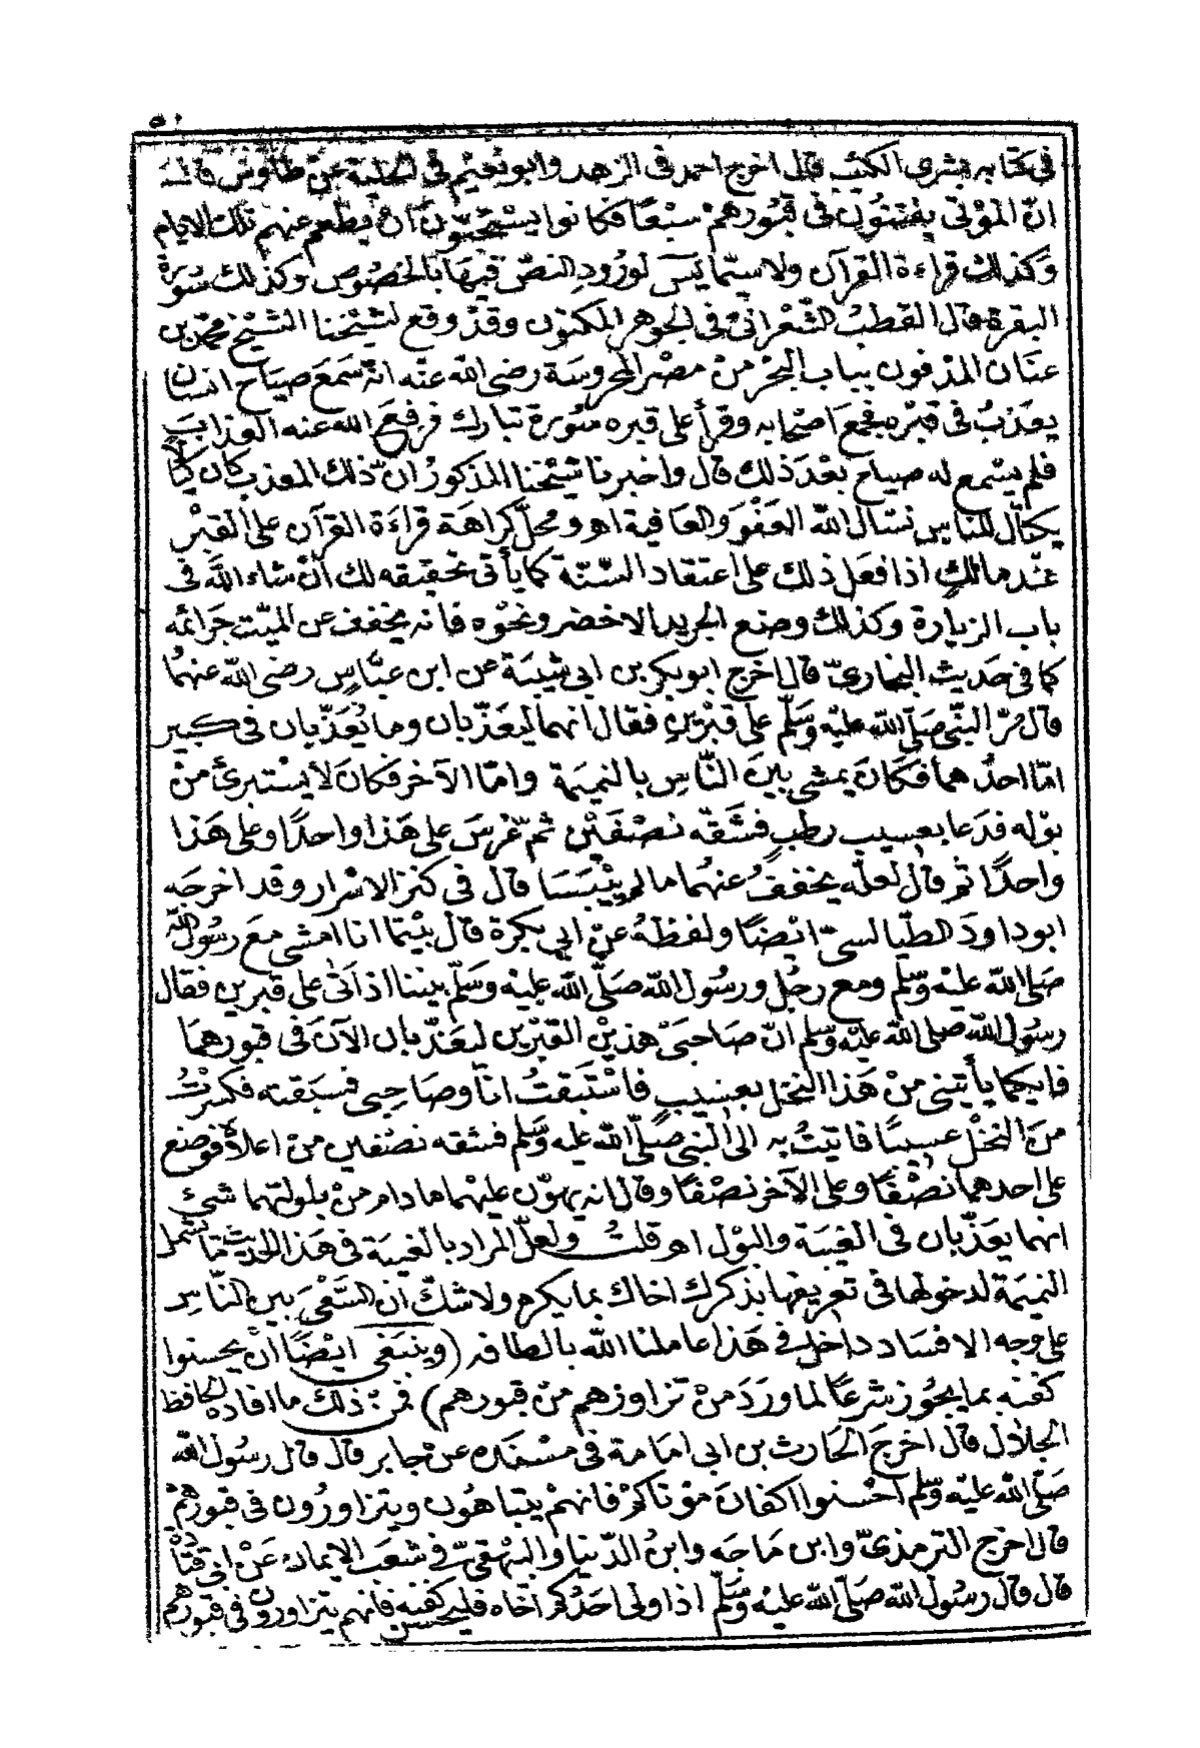 ٥٠
في كتابه بشرى الكئيب قال اخرج احمد في الزهد وابو نعيم في الحلية عن طاوس قال
انّ الموتى يفتنون في قبورهم سبعًا فكانوا يستحبّون ان يطعم عنهم تلك الايام
وكذلك قراءة القرآن ولا سيّما يس لورود النصّ فيها بالخصوص وكذلك سورة
البقرة قال القطب الشّعرانيّ في الجوهر المكنون وقد وقع لشيخنا الشيخ محمّد بن
عنان المدفون بباب البحر من مصر المحروسة رضي الله عنه انّه سمع صياح انسان
يعذب في قبره فجمع اصحابه وقرأ على قبره سورة تبارك فرفع الله عنه العذاب
فلم يسمع له صياح بعد ذلك قال واخبرنا شيخنا المذكور انّ ذلك المعذب كان كيالا
يكتال للناس نسال الله العفو والعافية اهـ ومحلّ كراهة قراءة القرآن على القبر
عند مالك اذا فعل ذلك على اعتقاد السّنّة كما يأتي تحقيقه لك ان شاء الله في
باب الزيارة وكذلك وضع الجريد الاخضر ونحوه فانه يخفف عن الميّت جرائمه
كما في حديث البخاريّ قال اخرج ابو بكر بن ابي شيبة عن ابن عبّاس رضي الله عنهما
قال مرّ النّبي صلّى الله عليه وسلّم على قبرين فقال انهما ليعذّبان وما يُعَذّبان في كبير
امّا احدُهما فكان يمشي بين النّاس بالنميمة وامّا الآخر فكان لا يستبرئ من
بوله فدعا بعسيب رطب فشقّه نصفين ثمّ غرس على هذا واحدًا وعلى هذا
واحدًا ثم قال لعلّه يخففُ عنهما ما لم ييبسا قال في كنز الاسرار وقد اخرجه
ابو داود الطّيالسيّ ايضًا ولفظهُ عن ابي بكرة قال بينما انا امشي مع رسول الله
صلى الله عليه وسلّم ومع رجُل ورسُول الله صلّى الله عليه وسلّم بيننا اذ اتى على قبرين فقال
رسول الله صلى الله عليه وسلم انّ صاحبي هذين القبرين ليعذّبان الآن في قبورهما
فايكما يأتيني من هذا النخل بعسيب فاستبقتُ انا وصاحبي فسبقته فكسرتُ
من النخل عسيبًا فاتيتُ به الى النبي صلّى الله عليه وسلّم فشقه نصفين من اعلاه فوضع
على احدهما نصفًا وعلى الآخر نصفًا وقال انه يهوّن عليهما ما دام من بلولتهما شيء
انهما يعذّبان في الغيبة والبول اهـ قلتُ ولعلّ المراد بالغيبة في هذا الحديث ما يشمل
النميمة لدخولها في تعريفها بذكرك اخاك بما يكره ولا شكّ ان السّعي بين النّاس
على وجه الافساد داخل في هذا عاملنا الله بالطافه (وينبغي ايضًا ان يحسنوا
كفنه بما يجوز شرعًا لما ورد من تزاورهم من قبورهم) فمن ذلك ما افاده الحافظ
الجلال قال اخرج الحارث بن ابي امامة في مسنده عن جابر قال قال رسول الله
صلّى الله عليه وسلّم احسنوا اكفان موتاكم فانهم يتباهون ويتزاورون في قبورهم
قال اخرج الترمذيّ وابن ماجه وابن الدّنيا والبيهقيّ في شعب الايمان عن ابي قتادة
قال قال رسول الله صلّى الله عليه وسلّم اذا ولى احدكم اخاه فليحسن كفنه فانهم يتزاورون في قبورهم